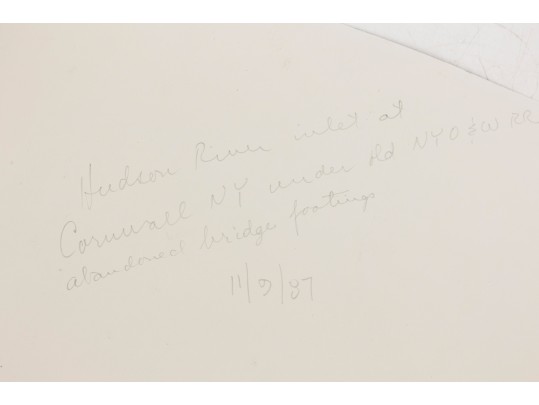 Hudson River inlet at
Cornwall NY under old NYO&W RR
abandoned bridge footings
11/9/87